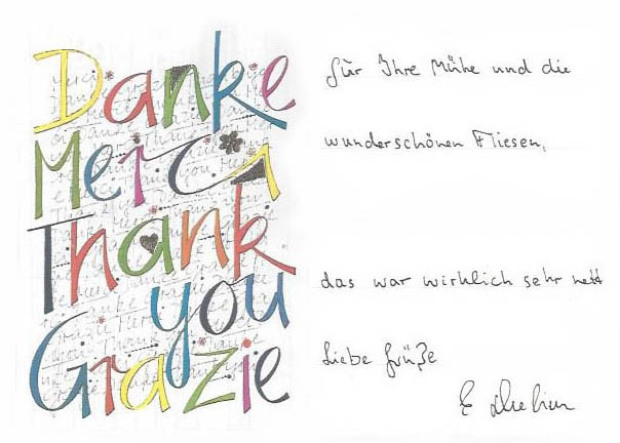 Danke
Merci
Thank
you
Grazie
für Ihre Mühe und die
wunderschönen Fliesen,
das war wirklich sehr nett
Liebe Grüße
E